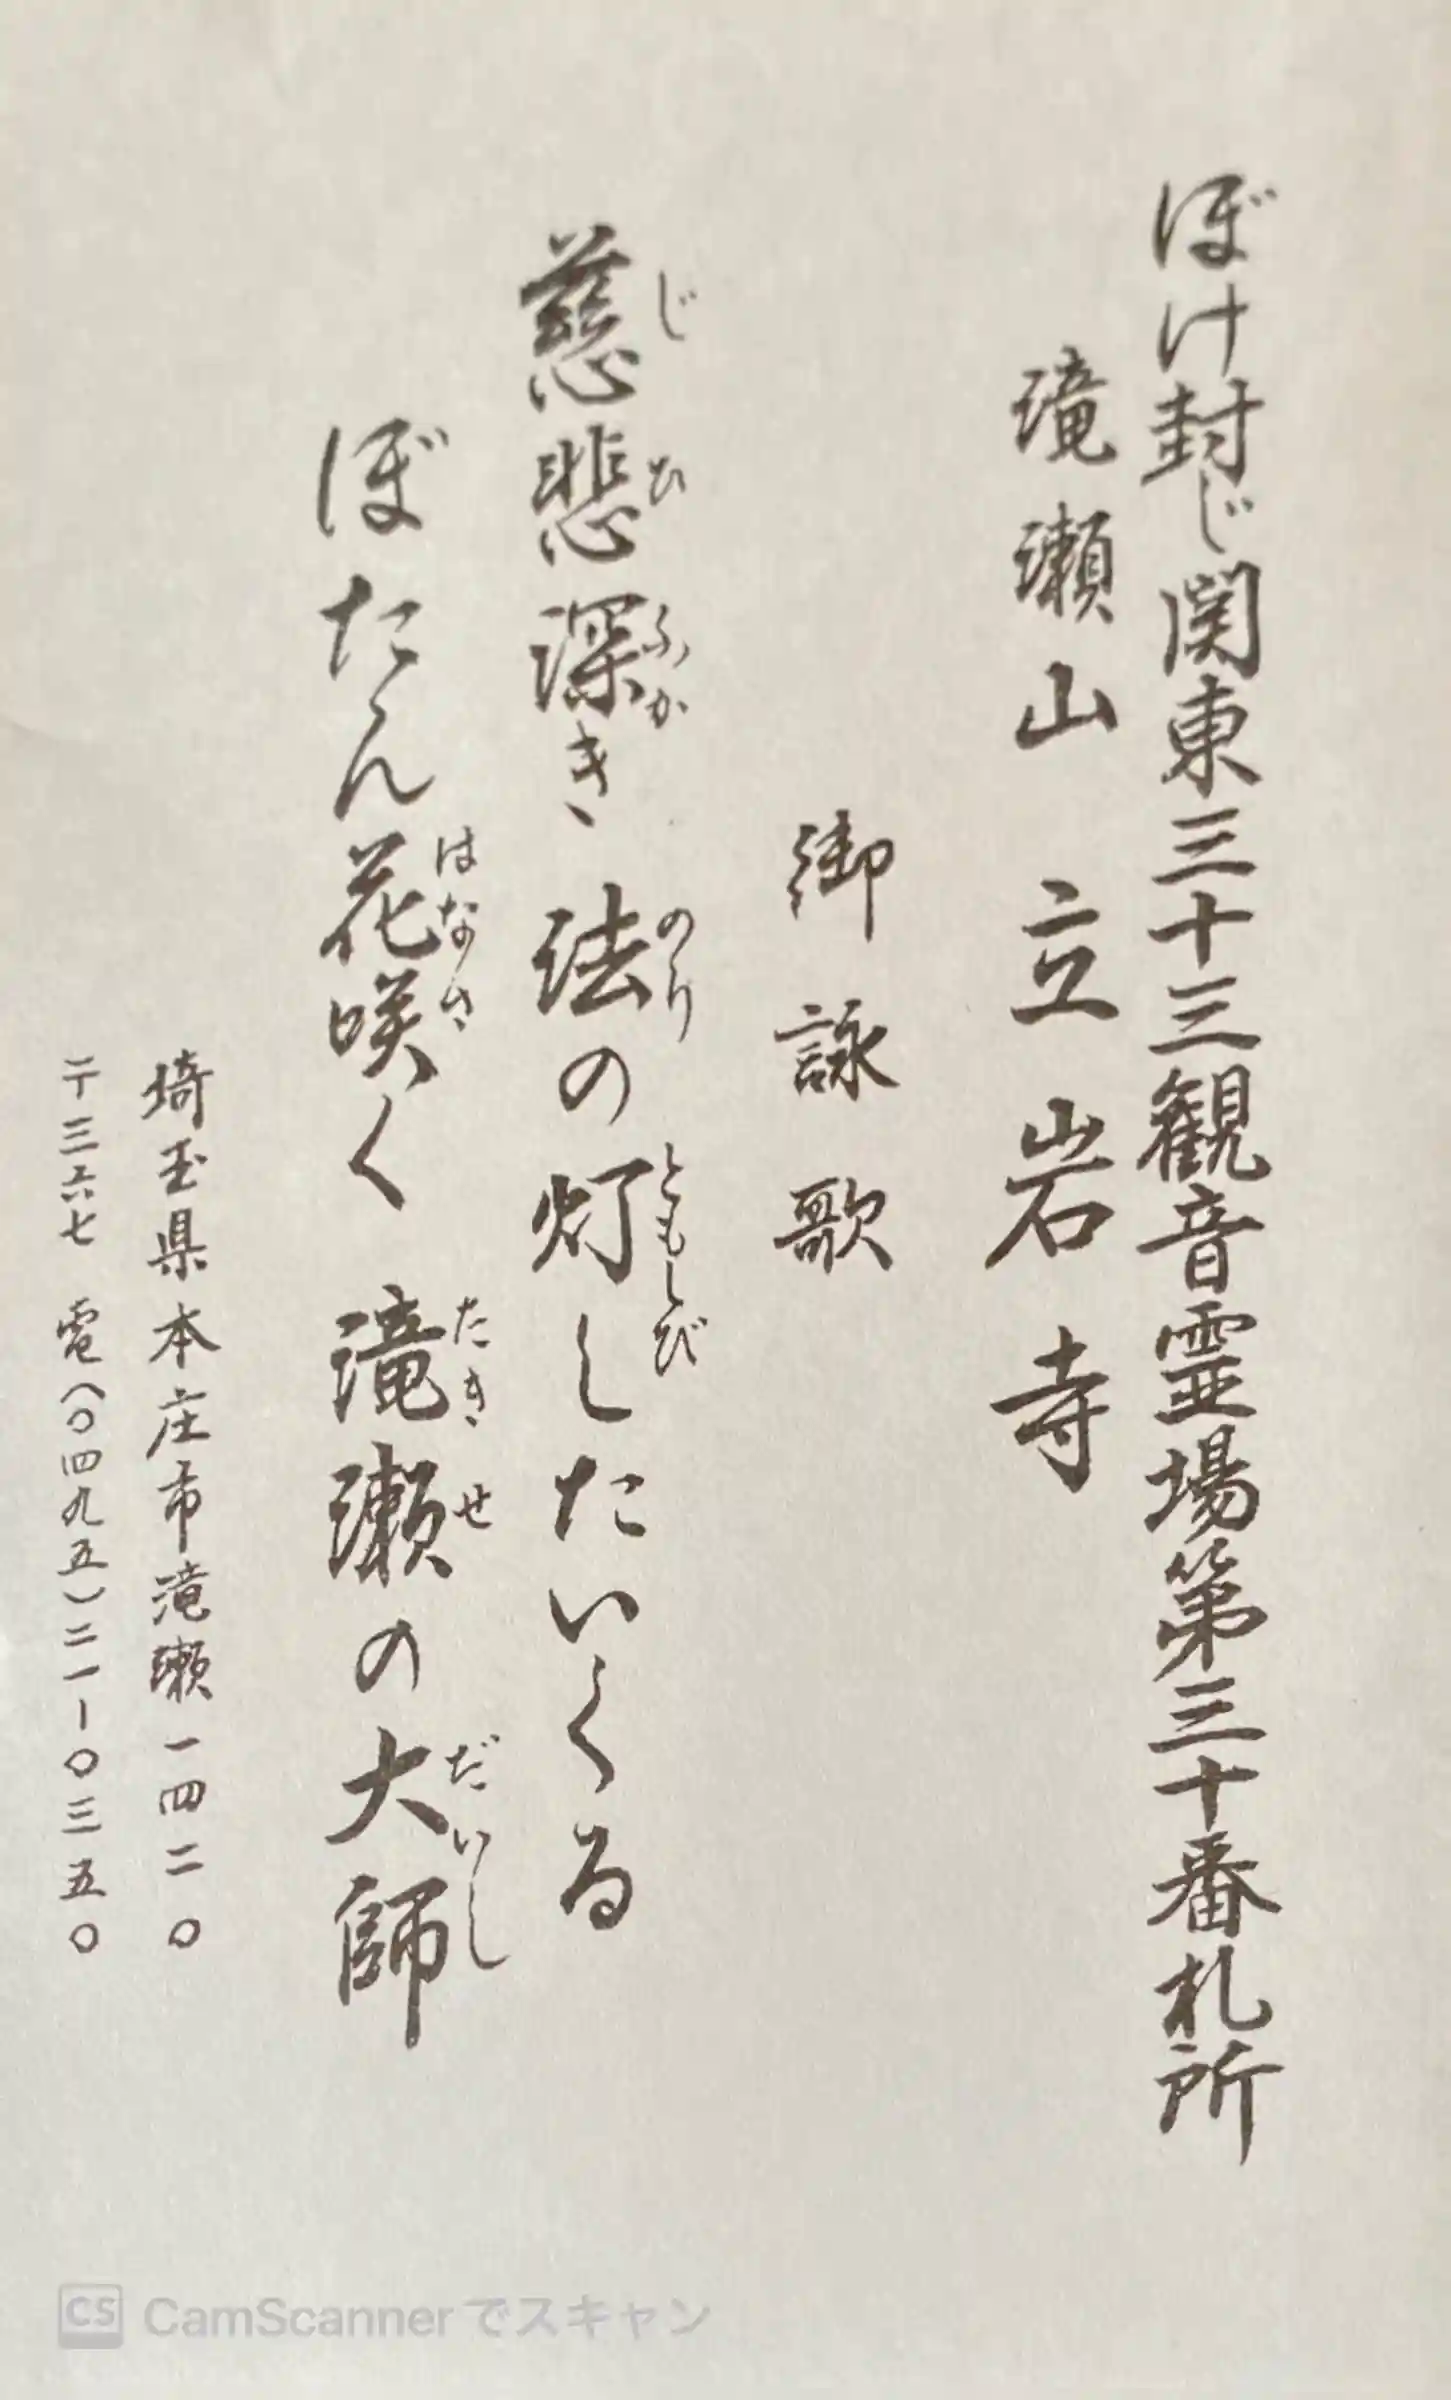 ぼけ封じ関東三十三観音霊場第三十番札所
滝瀬山 立岩寺
御詠歌
慈悲深き 法の灯したいくる
じひふか のり ともしび
ぼたん花咲く 滝瀬の大師
はなさ たきせ だいし
埼玉県本庄市滝瀬一四二〇
〒三六七 電(〇四九五)二一-〇三五〇
CS CamScannerでスキャン